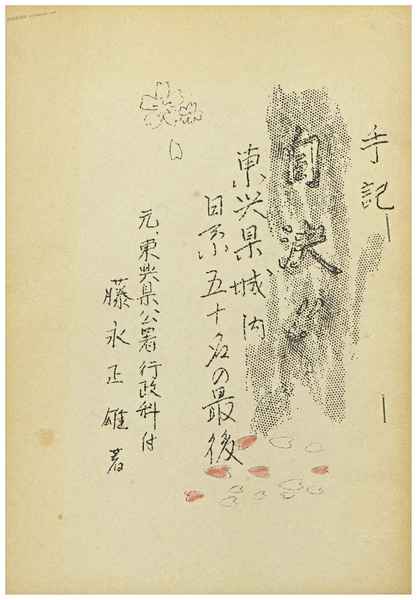 手記
自決
東兴県城内
日系五十名の最後
元、東兴県公署行政科付
藤永正雄著